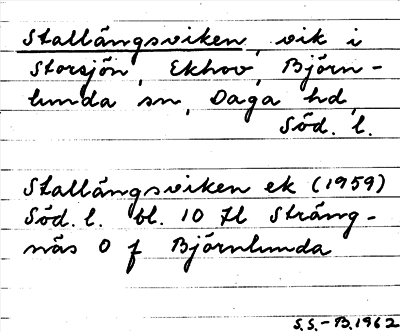 Stallängsviken, vik i
Storsjön, Ekhov, Björn-
lunda sn, Daga hd,
Söd. l.
Stallängsviken ek (1959)
Söd. l. bl. 10 Il Sträng-
näs O f Björnlunda
S.S.-B. 1962